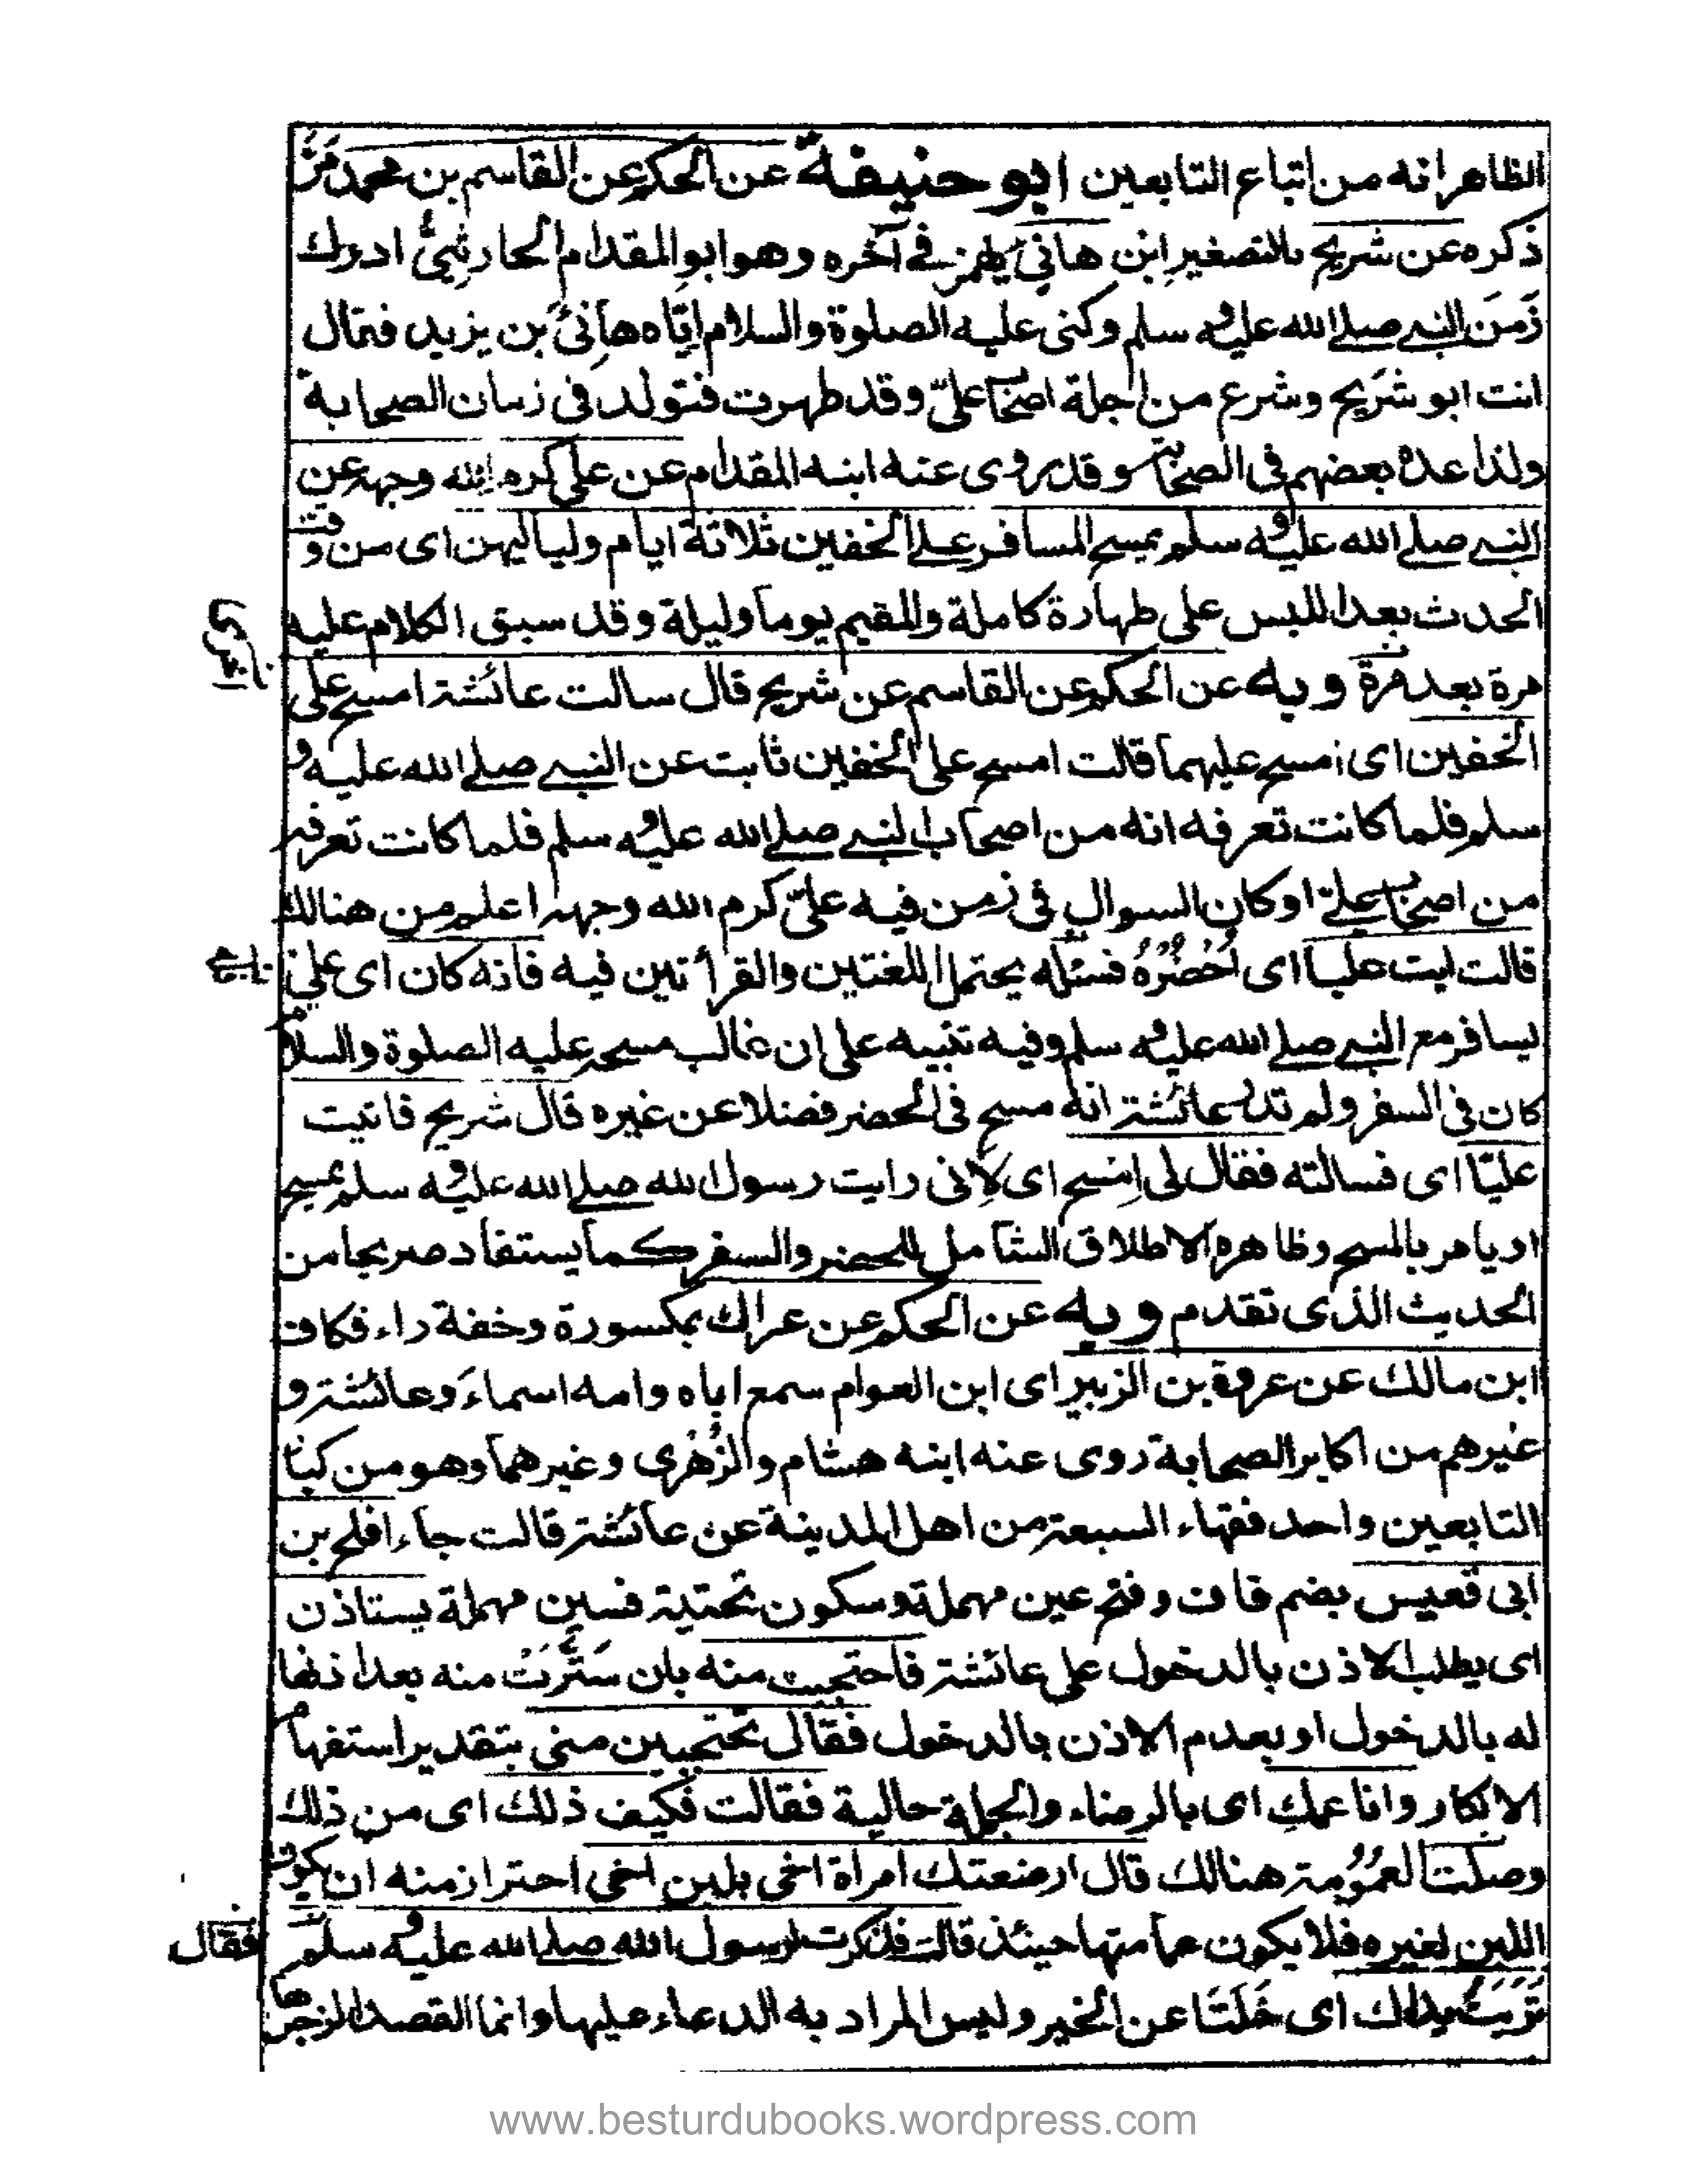 الظاهر انه من اتباع التابعين ابو حنيفة عن الحكم عن القاسم بن محمد مَرَّ
ذكره عن شريح بالتصغير ابن هانئ بهمز في آخره وهو ابو المقدام الحارثيُّ ادرك
زَمَنَ النبي صلى الله عليه و سلم وكنى عليه الصلوة والسلام اباه هانئ بن يزيد فقال
انت ابو شريح وشرع من اجلة اصحاب عليّ وقد ظهرت فتولد في زمان الصحابة
ولذا عده بعضهم في الصحابة وقد روى عنه ابنه المقدام عن علي كرم الله وجهه عن
النبي صلى الله عليه و سلم يمسح المسافر على الخفين ثلاثة ايام ولياليهن اى من وقت
الحدث بعد اللبس على طهارة كاملة والمقيم يوما وليلة وقد سبق الكلام عليه
مرة بعد مرة وبه عن الحكم عن القاسم عن شريح قال سالت عائشة امسح على
الخفين اى امسح عليهما قالت امسح على الخفين ثابت عن النبي صلى الله عليه و
سلم فلما كانت تعرفه انه من اصحاب النبي صلى الله عليه و سلم فلما كانت تعرفه
من اصحاب علي او كان السوال في زمن فيه عليّ كرم الله وجهه اعلم من هنالك
قالت ايت عليا اى اُحْضُرْهُ فسئله يحتمل اللغتين والقرأتين فيه فانه كان اى علي
يسافر مع النبي صلى الله عليه و سلم وفيه تنبيه على ان غالب مسحه عليه الصلوة والسلام
كان في السفر ولم تدر عائشة انه مسح في الحضر فضلا عن غيره قال شريح فاتيت
عليّا اى فسالته فقال لى اِمْسَح اى لِاَنى رايت رسول الله صلى الله عليه و سلم يمسح
او يامر بالمسح وظاهره الاطلاق الشامل للحضر والسفر كما يستفاد صريحا من
الحديث الذى تقدم وبه عن الحكم عن عراك بمكسورة وخفة راء فكاف
ابن مالك عن عروة بن الزبير اى ابن العوام سمع اباه وامه اسماءَ وعائشة و
غيرهم من اكابر الصحابة روى عنه ابنه هشام والزُهْرى وغيرهما وهو من كبار
التابعين واحد فقهاء السبعة من اهل المدينة عن عائشة قالت جاء افلح بن
ابى قعيس بضم قاف وفتح عين مهملة وسكون تحتية فسين مهملة يستاذن
اى يطلب الاذن بالدخول على عائشة فاحتجبت منه بان سَتَّرَتْ منه بعد اذنها
له بالدخول او بعدم الاذن بالدخول فقال تحتجبين منى بتقدير استفهام
الانكار وانا عمك اى بالرضاء والجملة حالية فقالت فكيف ذلك اى من ذلك
وصلت العُمُوْمة هنالك قال ارضعتك امراة اخى بلبن اخي احترازمنه ان يكون
اللبن لغيره فلا يكون عما متها حينئذ قالت فذكرت لرسول الله صلى الله عليه و سلم فقال
تَرِبَتْ يداك اى خَلَتَا عن الخير وليس المراد به الدعاء عليها وانما القصد الزجر
www.besturdubooks.wordpress.com